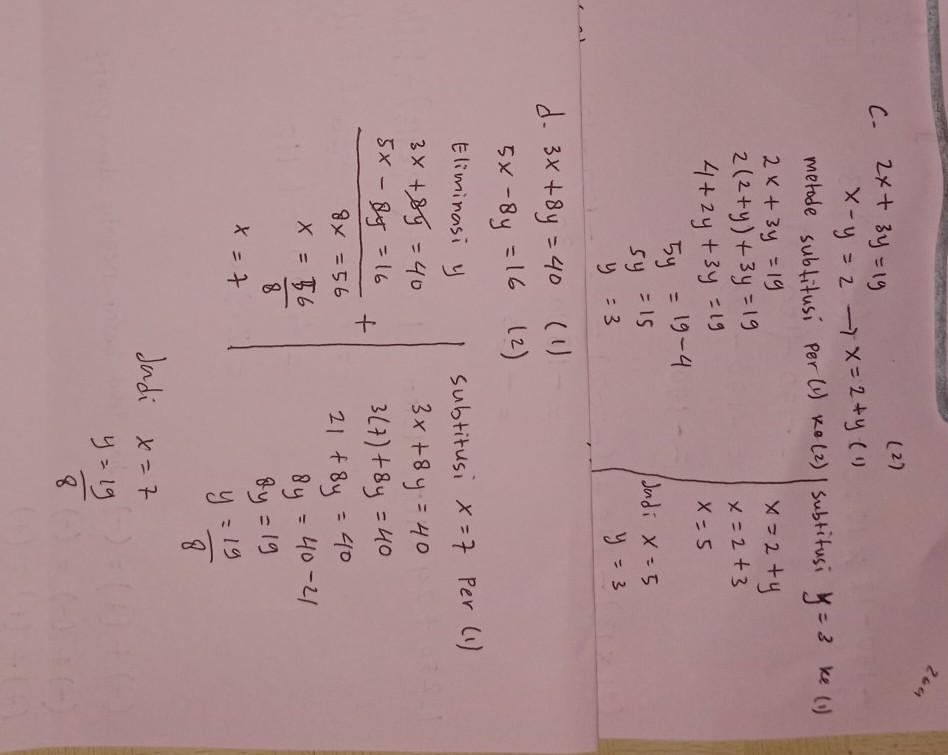 c. 2x + 3y = 19 (2)
x - y = 2 → x = 2 + y (1)
metode subtitusi per (1) ke (2)
2x + 3y = 19
2(2+y) + 3y = 19
4 + 2y + 3y = 19
5y = 19 - 4
5y = 15
y = 3
subtitusi y = 3 ke (1)
x = 2 + y
x = 2 + 3
x = 5
Jadi x = 5
y = 3
d. 3x + 8y = 40 (1)
5x - 8y = 16 (2)
Eliminasi y
3x + 8y = 40
5x - 8y = 16
+
8x = 56
x = 56/8
x = 7
subtitusi x = 7 per (1)
3x + 8y = 40
3(7) + 8y = 40
21 + 8y = 40
8y = 40 - 21
8y = 19
y = 19/8
Jadi x = 7
y = 19/8